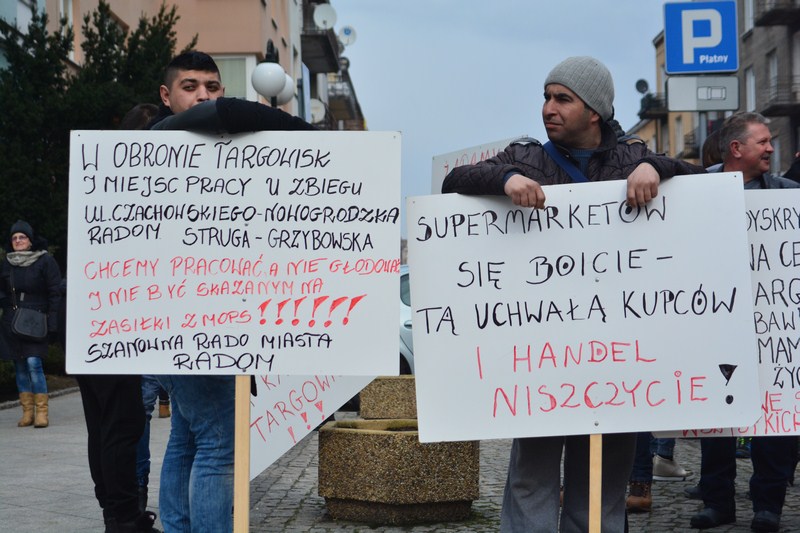 W OBRONIE TARGOWISK
I MIEJSC PRACY U ZBIEGU
UL.CZACHOWSKIEGO-NOWOGRODZKA
RADOM STRUGA - GRZYBOWSKA
CHCEMY PRACOWAĆ A NIE GŁODOWAĆ
I NIE BYĆ SKAZANYM NA
ZASIŁKI Z MOPS!!!!!!
SZANOWNA RADO MIASTA
RADOM
SUPERMARKETÓW
SIĘ BOICIE -
TĄ UCHWAŁĄ KUPCÓW
I HANDEL
NISZCZYCIE!
P
Płatny
DYSKRY
NA CE
ARG
BAW
MAM
ŻYC
TARGOW
!!!